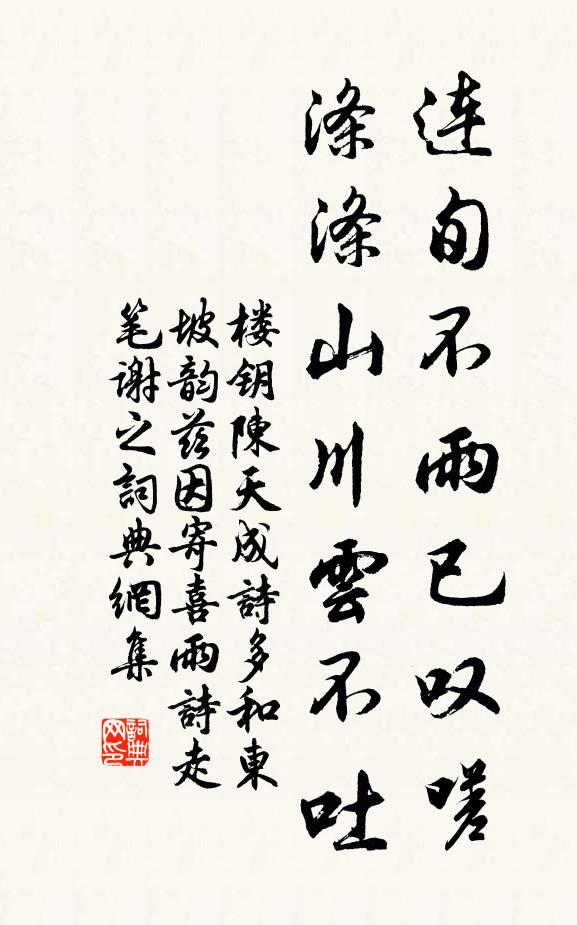 連旬不雨已叹嗟
涤涤山川雲不吐
楼钥陳天成詩多和東
坡韵兹因寄喜雨詩走
笔谢之詞典網集
詞典
网印